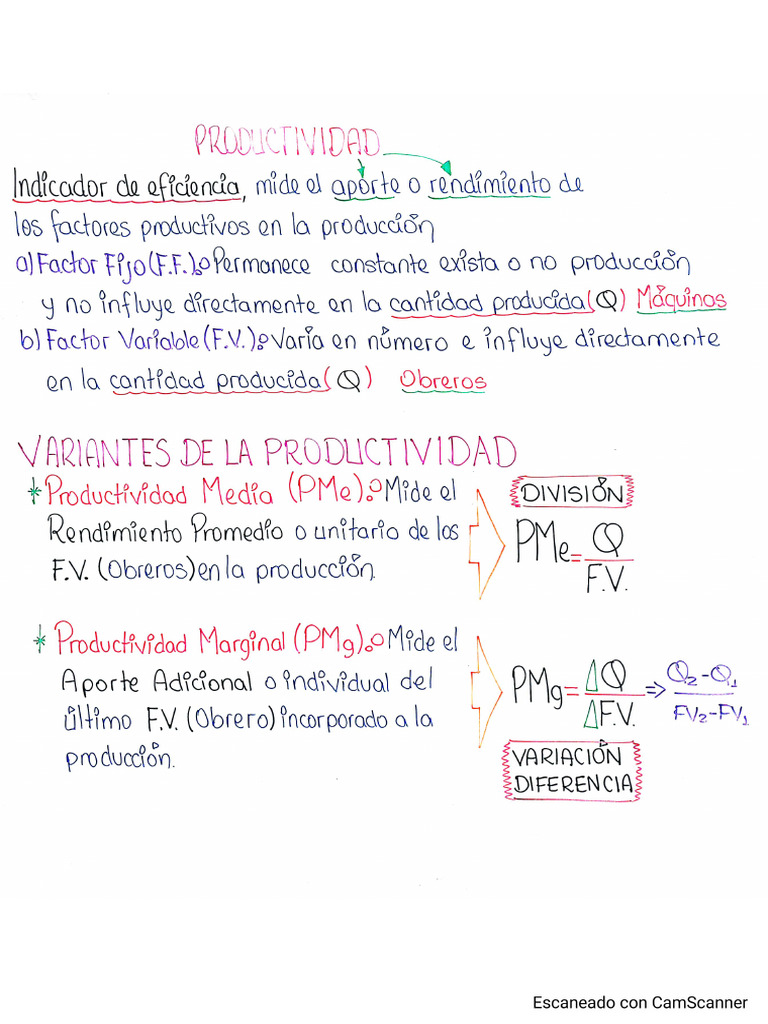 PRODUCTIVIDAD
Indicador de eficiencia, mide el aporte o rendimiento de
los factores productivos en la producción
a) Factor Fijo (F.F.): Permanece constante exista o no producción
y no influye directamente en la cantidad producida (Q) Máquinos
b) Factor Variable (F.V.): Varía en número e influye directamente
en la cantidad producida (Q) Obreros
VARIANTES DE LA PRODUCTIVIDAD
* Productividad Media (PMe): Mide el
Rendimiento Promedio o unitario de los
F.V. (Obreros) en la producción.
DIVISIÓN
PMe = Q / F.V.
* Productividad Marginal (PMg): Mide el
Aporte Adicional o individual del
último F.V. (Obrero) incorporado a la
producción.
PMg = ΔQ / ΔF.V. => Q2-Q1 / FV2-FV1
VARIACIÓN
DIFERENCIA
Escaneado con CamScanner